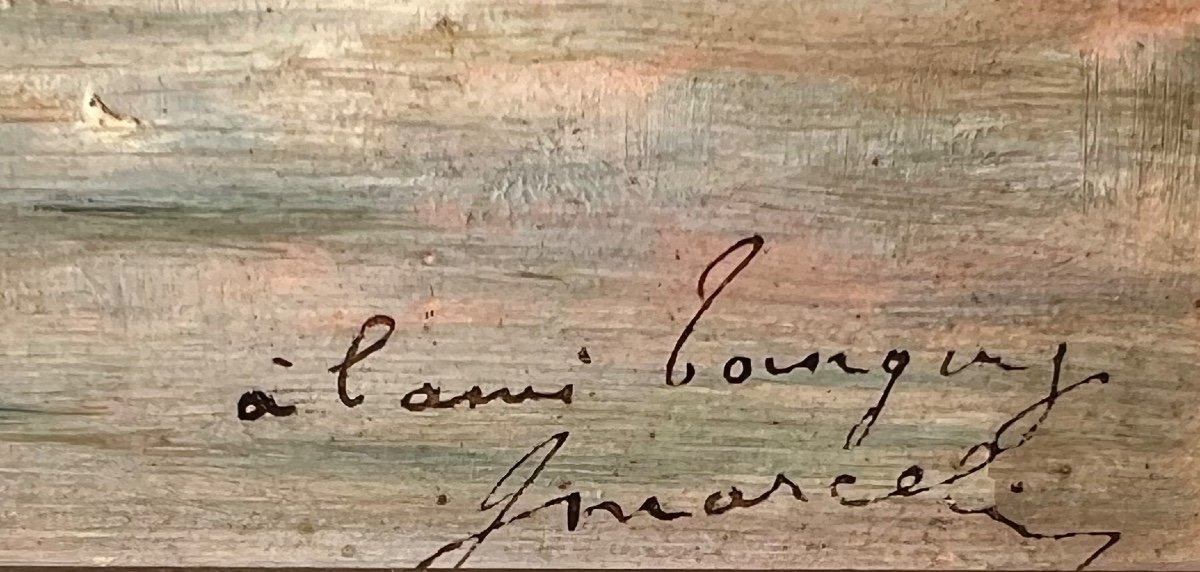 à l'ami bourguy
J marcel